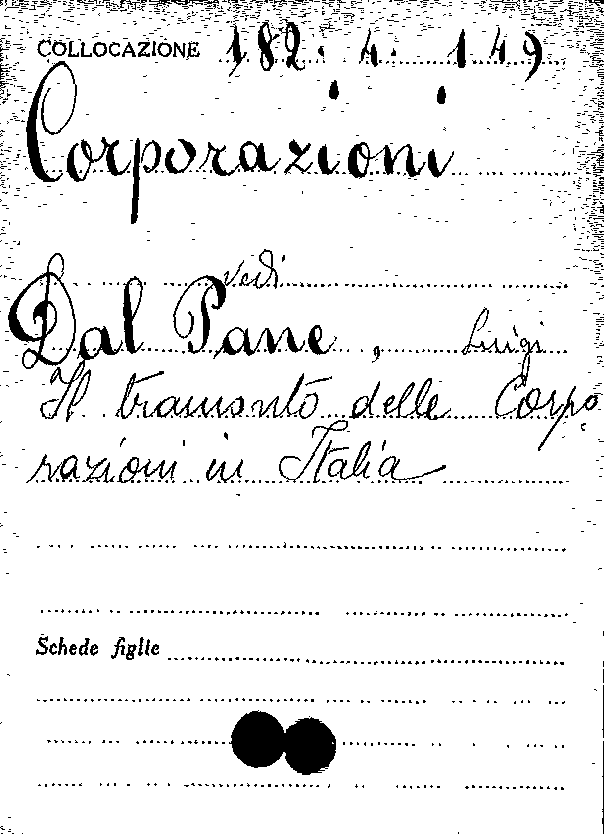 COLLOCAZIONE 182. 4. 149
Corporazioni
vedi
Dal Pane, Luigi
Il tramonto delle Corpo
razioni in Italia
Schede figlie